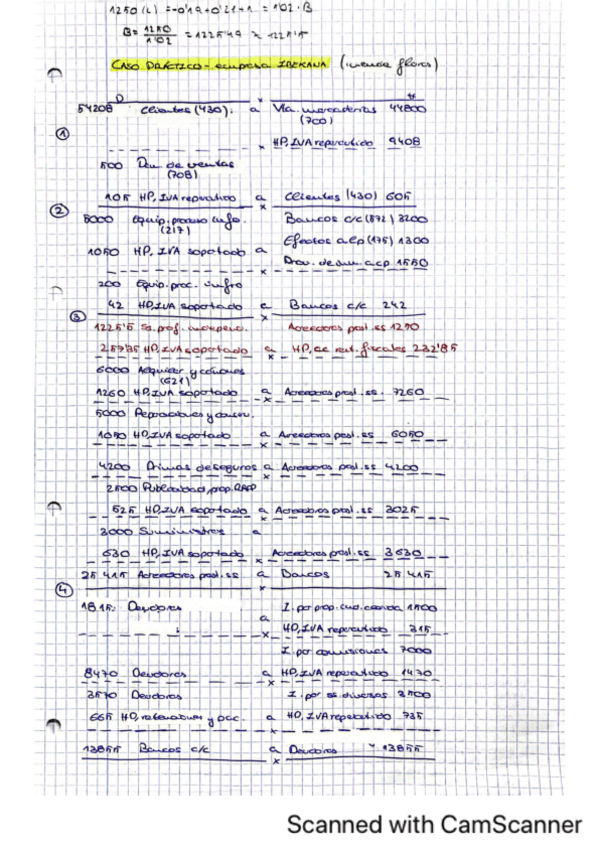 1250 (L) = -0'19+0'21+1 = 1'02 · B
B = 1250 / 1'02 = 1225'49 ≈ 1225'5
CASO PRÁCTICO - empresa IBEKANA (vende flores)
D H
54208 Clientes (430). a Vta. mercaderías 44800
(700)
① HP, IVA repercutido 9408
500 Dev. de ventas
(708)
105 HP, IVA repercutido a Clientes (430) 605
② 5000 Equip. proceso info. Bancos c/c (572) 3200
(217)
Efectos a cp (175) 1300
1050 HP, IVA soportado a
Prov. de inm. a cp 1550
200 Equip. proc. info
42 HP, IVA soportado a Bancos c/c 242
③ 1225'5 Ss. prof. independ. Acreedores prest. ss 1250
257'35 HP, IVA soportado a HP, ac. ret. fiscales 232'85
6000 y cánones
(621)
1260 HP, IVA soportado a Acreedores prest. ss. 7260
5000 Reparaciones y conserv.
1050 HP, IVA soportado a Acreedores prest. ss 6050
4200 Primas de seguros a Acreedores prest. ss 4200
2500 Publicidad, prop. RRPP
525 HP, IVA soportado a Acreedores prest. ss 3025
3000 Suministros a
630 HP, IVA soportado Acreedores prest. ss 3630
25 415 Acreedores prest. ss a Bancos 25 415
④ 1815. Deudores I. por prop. ind. cedida 1500
a
HP, IVA repercutido 315
I. por comisiones 7000
8470 Deudores a HP, IVA repercutido 1430
3570 Deudores I. por ss. diversos 3500
665 HP, retenciones y pcc. a HP, IVA repercutido 735
13855 Bancos c/c a Deudores 13855
Scanned with CamScanner